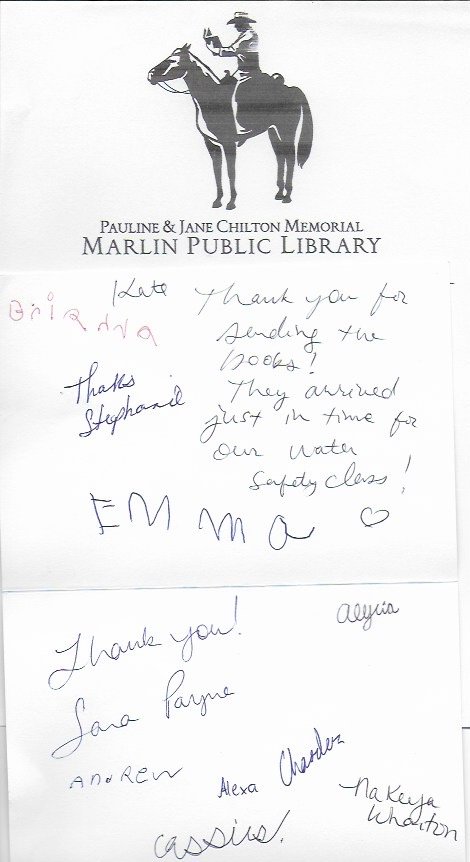 PAULINE & JANE CHILTON MEMORIAL
MARLIN PUBLIC LIBRARY
Kate
Brianna
Thank you for
sending the
books!
They arrived
just in time for
our water
safety class!
Thanks
Stephanie
EMMA
Thank you!
Alycia
Sara Payne
ANdREW
Alexa
Nakeya
Wharton
Cassius!